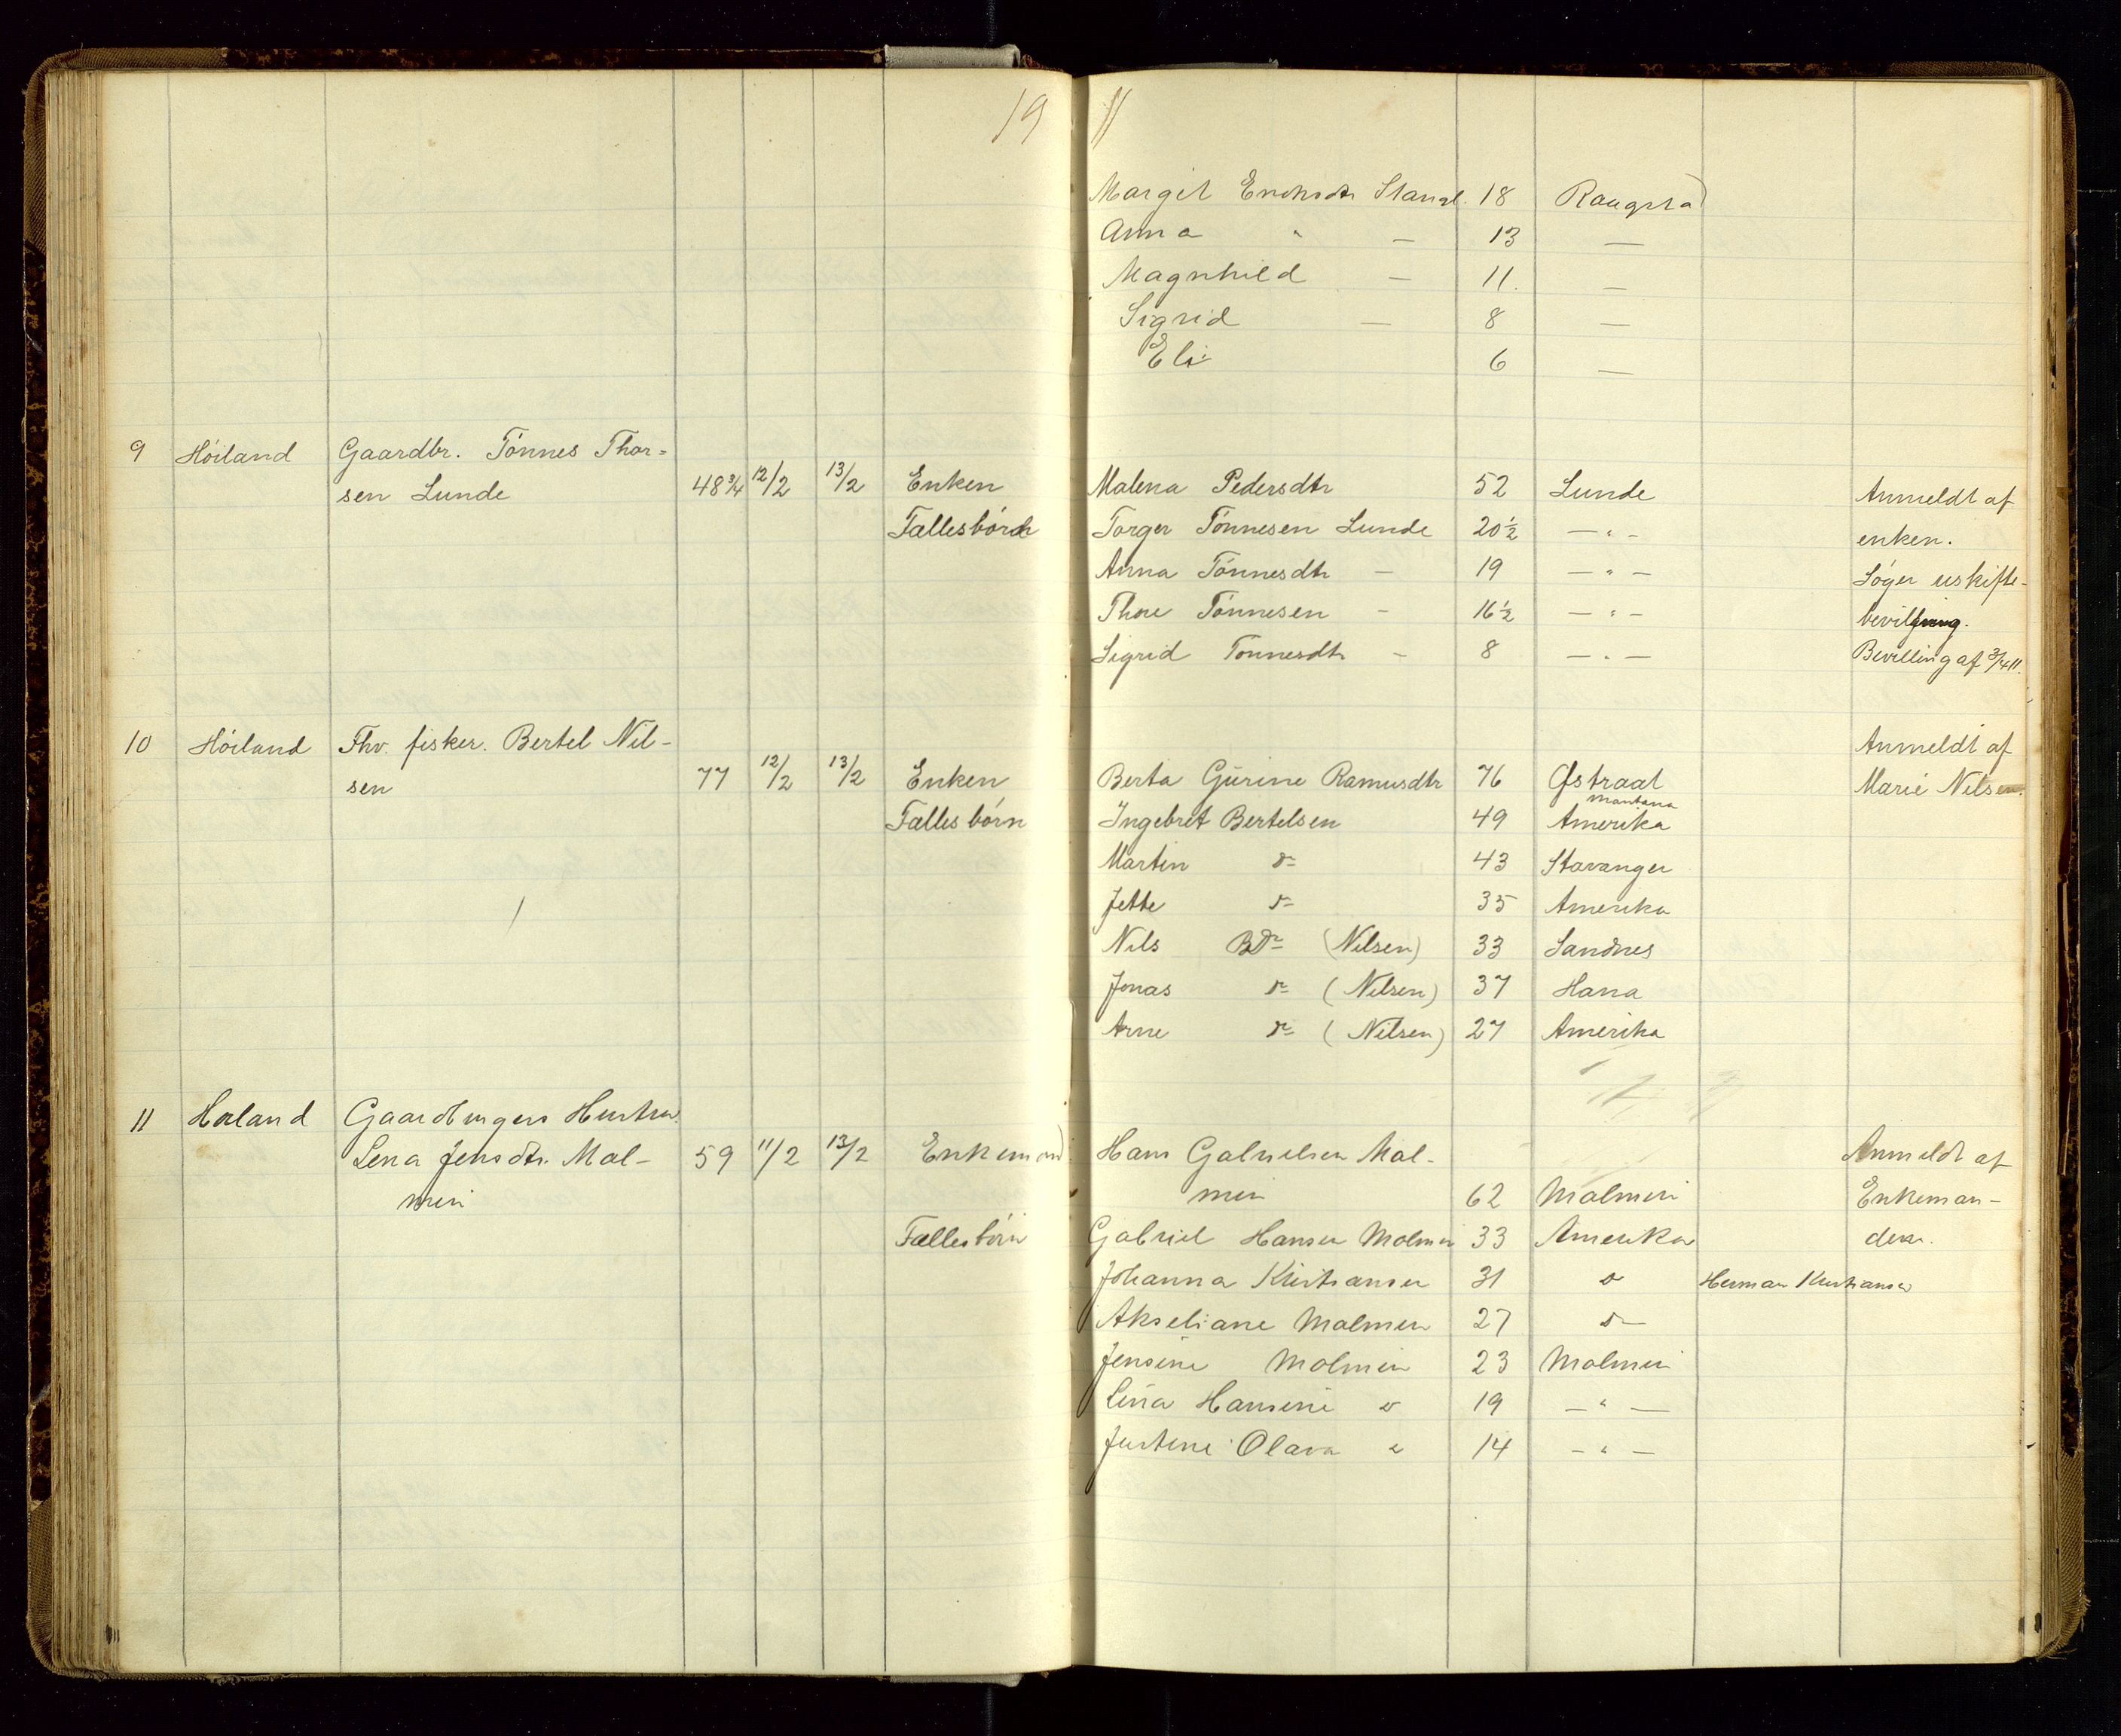 19 11
Margit Stangl. 18 Raugstad
Anna " — 13 —
Magnhild — 11. —
Sigrid — 8 —
Eli 6 —
9 Höiland Gaardbr. Tönnes Thor=
sen Lunde 48 3/4 12/2 13/2 Enken Malena Pedersdtr 52 Lunde Anmeldt af
Fællesbörn Torger Tönnesen Lunde 20 1/2 — " — enken.
Anna Tönnesdtr — 19 — " — Söger uskifte-
Thore Tönnesen — 16 1/2 — " —
Sigrid Tönnesdtr — 8 — " — Bevilling af 3/4 11.
10 Höiland Fhv. fisker. Bertel Nil- Anmeldt af
sen 77 12/2 13/2 Enken Berta Gurine Ramusdtr 76 Østraat Marie Nilsen.
Montana
Fælles börn Ingebret Bertelsen 49 Amerika
Martin do 43 Stavanger
Jette do 35 Amerika
Nils do (Nilsen) 33 Sandnes
Jonas do (Nilsen) 37 Hana
Arne do (Nilsen) 27 Amerika
11 Höiland Gaardbrugers Hustru
Lena Jensdtr. Mal- 59 11/2 13/2 Enkemand Hans Gabrielsen Mal- Anmeldt af
min min 62 Malmin Enkeman-
Fællesbörn Gabriel Hansen Malmin 33 Amerika den.
Johanna Kristiansen 31 do Herman Kristiansen
Akseliane Malmin 27 do
Jensine Malmin 23 Malmin
Lina Hansine do 19 — " —
Justine Olava do 14 — " —